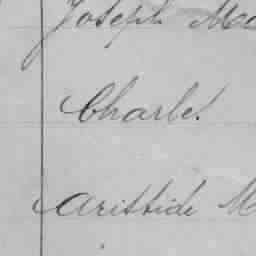 Joseph
Charles
Aristide M